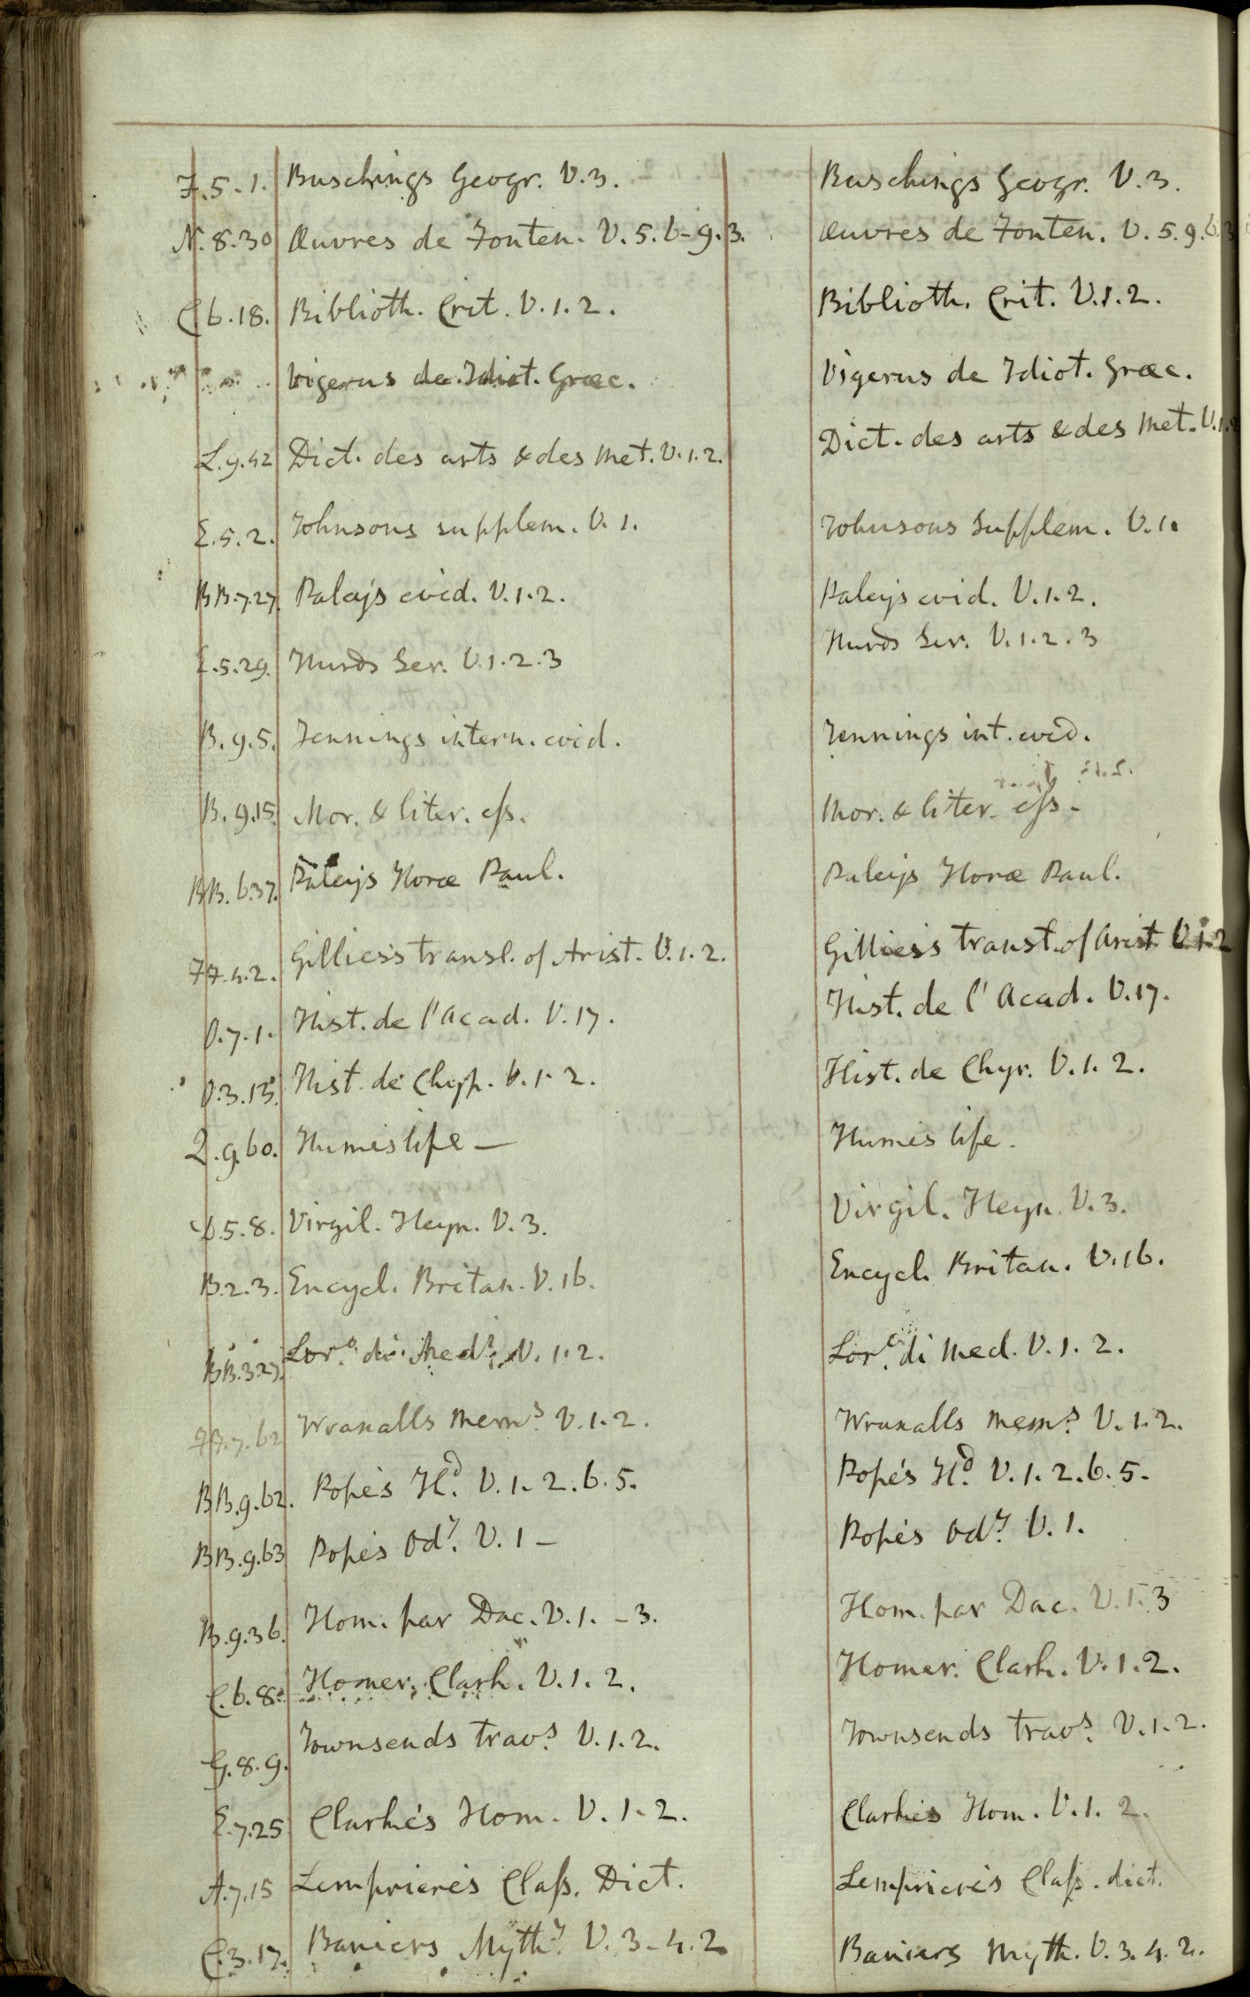 F.5.1. Buschings Geogr. V.3. Buschings Geogr. V.3.
N.8.30 Œuvres de Fonten. V.5.6-9.3. Œuvres de Fonten. V.5.9.6.3
C.6.18. Biblioth. Crit. V.1.2. Biblioth. Crit. V.1.2.
Vigerus de Idiot. Græc. Vigerus de Idiot. Græc.
L.9.42 Dict. des arts & des Met. V.1.2. Dict. des arts & des Met. V.1.2
E.5.2. Johnsons supplem. V.1. Johnsons Supplem. V.1.
BB.7.27. Paleys evid. V.1.2. Paleys evid. V.1.2.
E.5.29. Hurds Ser. V.1.2.3 Hurds Ser. V.1.2.3
B.9.5. Jennings intern. evid. Jennings int. evid.
B.9.15. Mor. & liter. ess. Mor. & liter. ess-
BB.6.37. Paleys Horæ Paul. Paleys Horæ Paul.
FF.4.2. Gillies's transl. of Arist. V.1.2. Gillies's transl. of Arist. V.1.2
O.7.1. Hist. de l'Acad. V.17. Hist. de l'Acad. V.17.
O.3.13. Hist. de Chyp. V.1.2. Hist. de Chyr. V.1.2.
Q.9.60. Hume's life — Hume's life.
D.5.8. Virgil. Heyn. V.3. Virgil. Heyn. V.3.
B.2.3. Encycl. Britan. V.16. Encycl. Britan. V.16.
BB.3.27. Lor.o di Med.i V.1.2. Lor.o di Med. V.1.2.
FF.7.62 Wraxalls Mem.s V.1.2. Wraxalls Mem.s V.1.2.
BB.9.62. Pope's Il.d V.1.2.6.5. Pope's Il.d V.1.2.6.5-
BB.9.63 Pope's Od.y V.1- Pope's Od.y V.1.
B.9.36. Hom. par Dac. V.1.-3. Hom. par Dac. V.1-3
C.6.8. Homer. Clark. V.1.2. Homer. Clark. V.1.2.
G.8.9. Townsends trav.s V.1.2. Townsends trav.s V.1.2.
E.7.25 Clarke's Hom. V.1-2. Clarkes Hom. V.1.2.
A.7.15 Lempriere's Class. Dict. Lempriere's Class. dict.
C.3.17. Baniers Myth.y V.3-4.2 Baniers Myth. V.3.4.2.